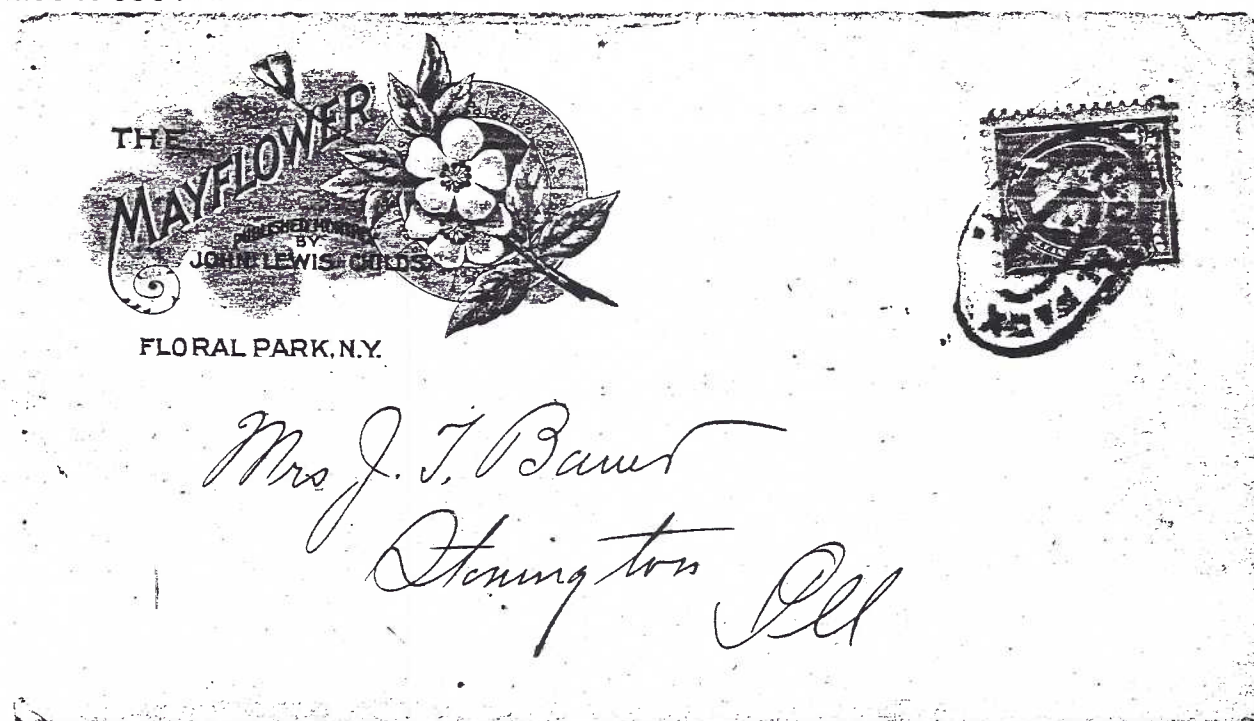 THE
MAYFLOWER
PUBLISHED MONTHLY
BY
JOHN LEWIS CHILDS
FLORAL PARK, N.Y.
Mrs J. T.
Stonington
Ill